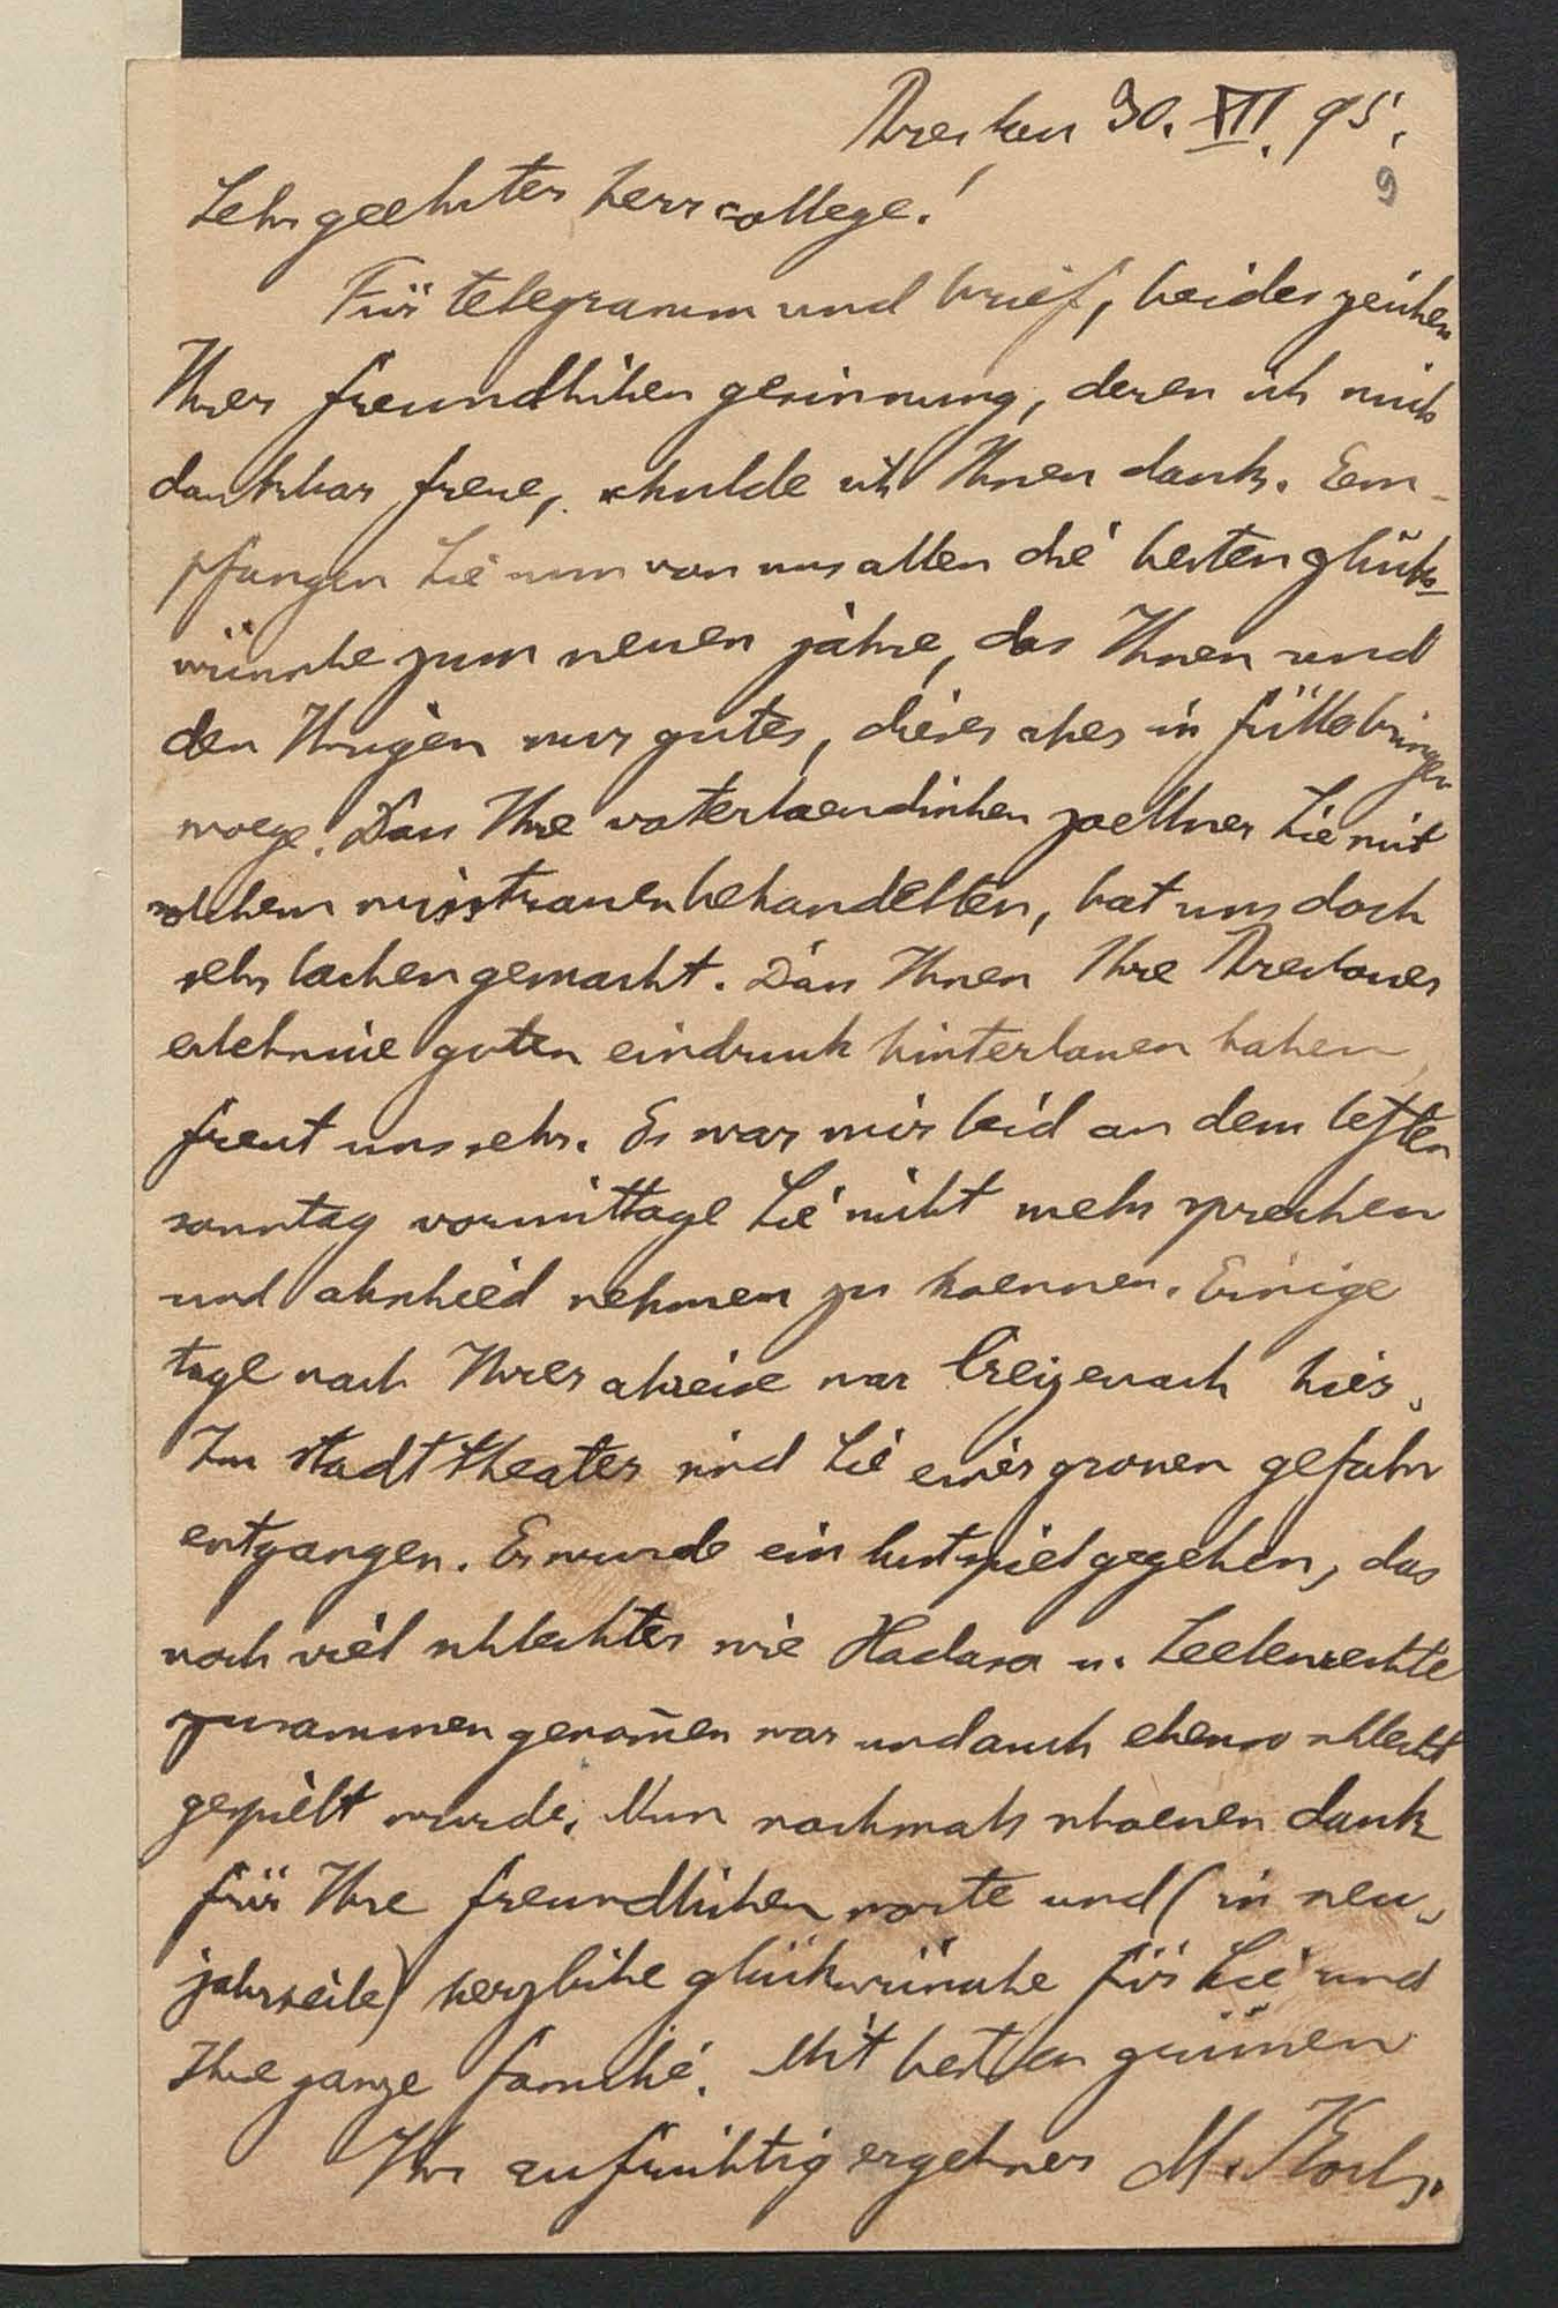 Breslau 30. XII. 95.
9
Sehr geehrter herr college!
Für telegramm und brief, beides zeichen
Ihrer freundlichen gesinnung, deren ich mich
dankbar freue, schulde ich Ihnen dank. Em-
pfangen Sie nun von uns allen die besten glück-
wünsche zum neuen jahre, das Ihnen und
den Ihrigen nur gutes, dieses aber in fülle bringen
moege. Dass Ihre vaterlaendischen zoellner Sie mit
solchem misstrauen behandelten, hat uns doch
sehr lachen gemacht. Dass Ihnen Ihre Breslauer
erlebnisse guten eindruck hinterlassen haben,
freut uns sehr. Es war mir leid an dem letzten
sonntag vormittage Sie nicht mehr sprechen
und abschied nehmen zu koennen. Einige
tage nach Ihrer abreise war Creizenach hier.
Im stadttheater sind Sie einer grossen gefahr
entgangen. Es wurde ein lustspiel gegeben, das
noch viel schlechter wie Hadasa u. Seelenrechte
zusammen genom̄en war und auch ebenso schlecht
gespielt wurde. Nun nochmals schoenen dank
für Ihre freundlichen worte und (in neu-
jahrseile) herzliche glückwünsche für Sie und
Ihre ganze familie. Mit besten grüssen
Ihr aufrichtig ergebner M. Koch.